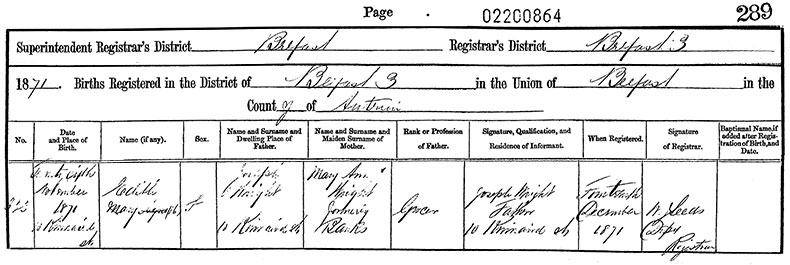 Page 02200864 289
Superintendent Registrar's District Belfast Registrar's District Belfast 3
1871. Births Registered in the District of Belfast 3 in the Union of Belfast in the
County of Antrim
No. Date and Place of Birth. Name (if any). Sex. Name and Surname and Dwelling Place of Father. Name and Surname and Maiden Surname of Mother. Rank or Profession of Father. Signature, Qualification, and Residence of Informant. When Registered. Signature of Registrar. Baptismal Name, if added after Registration of Birth, and Date.
November 1871 10 Kinnaird St
Edith Mary
F
Joseph Wright 10 Kinnaird St
Mary Ann Wright formerly Banks
Grocer
Joseph Wright Father 10 Kinnaird St
Fourteenth December 1871
W. Leeds Registrar